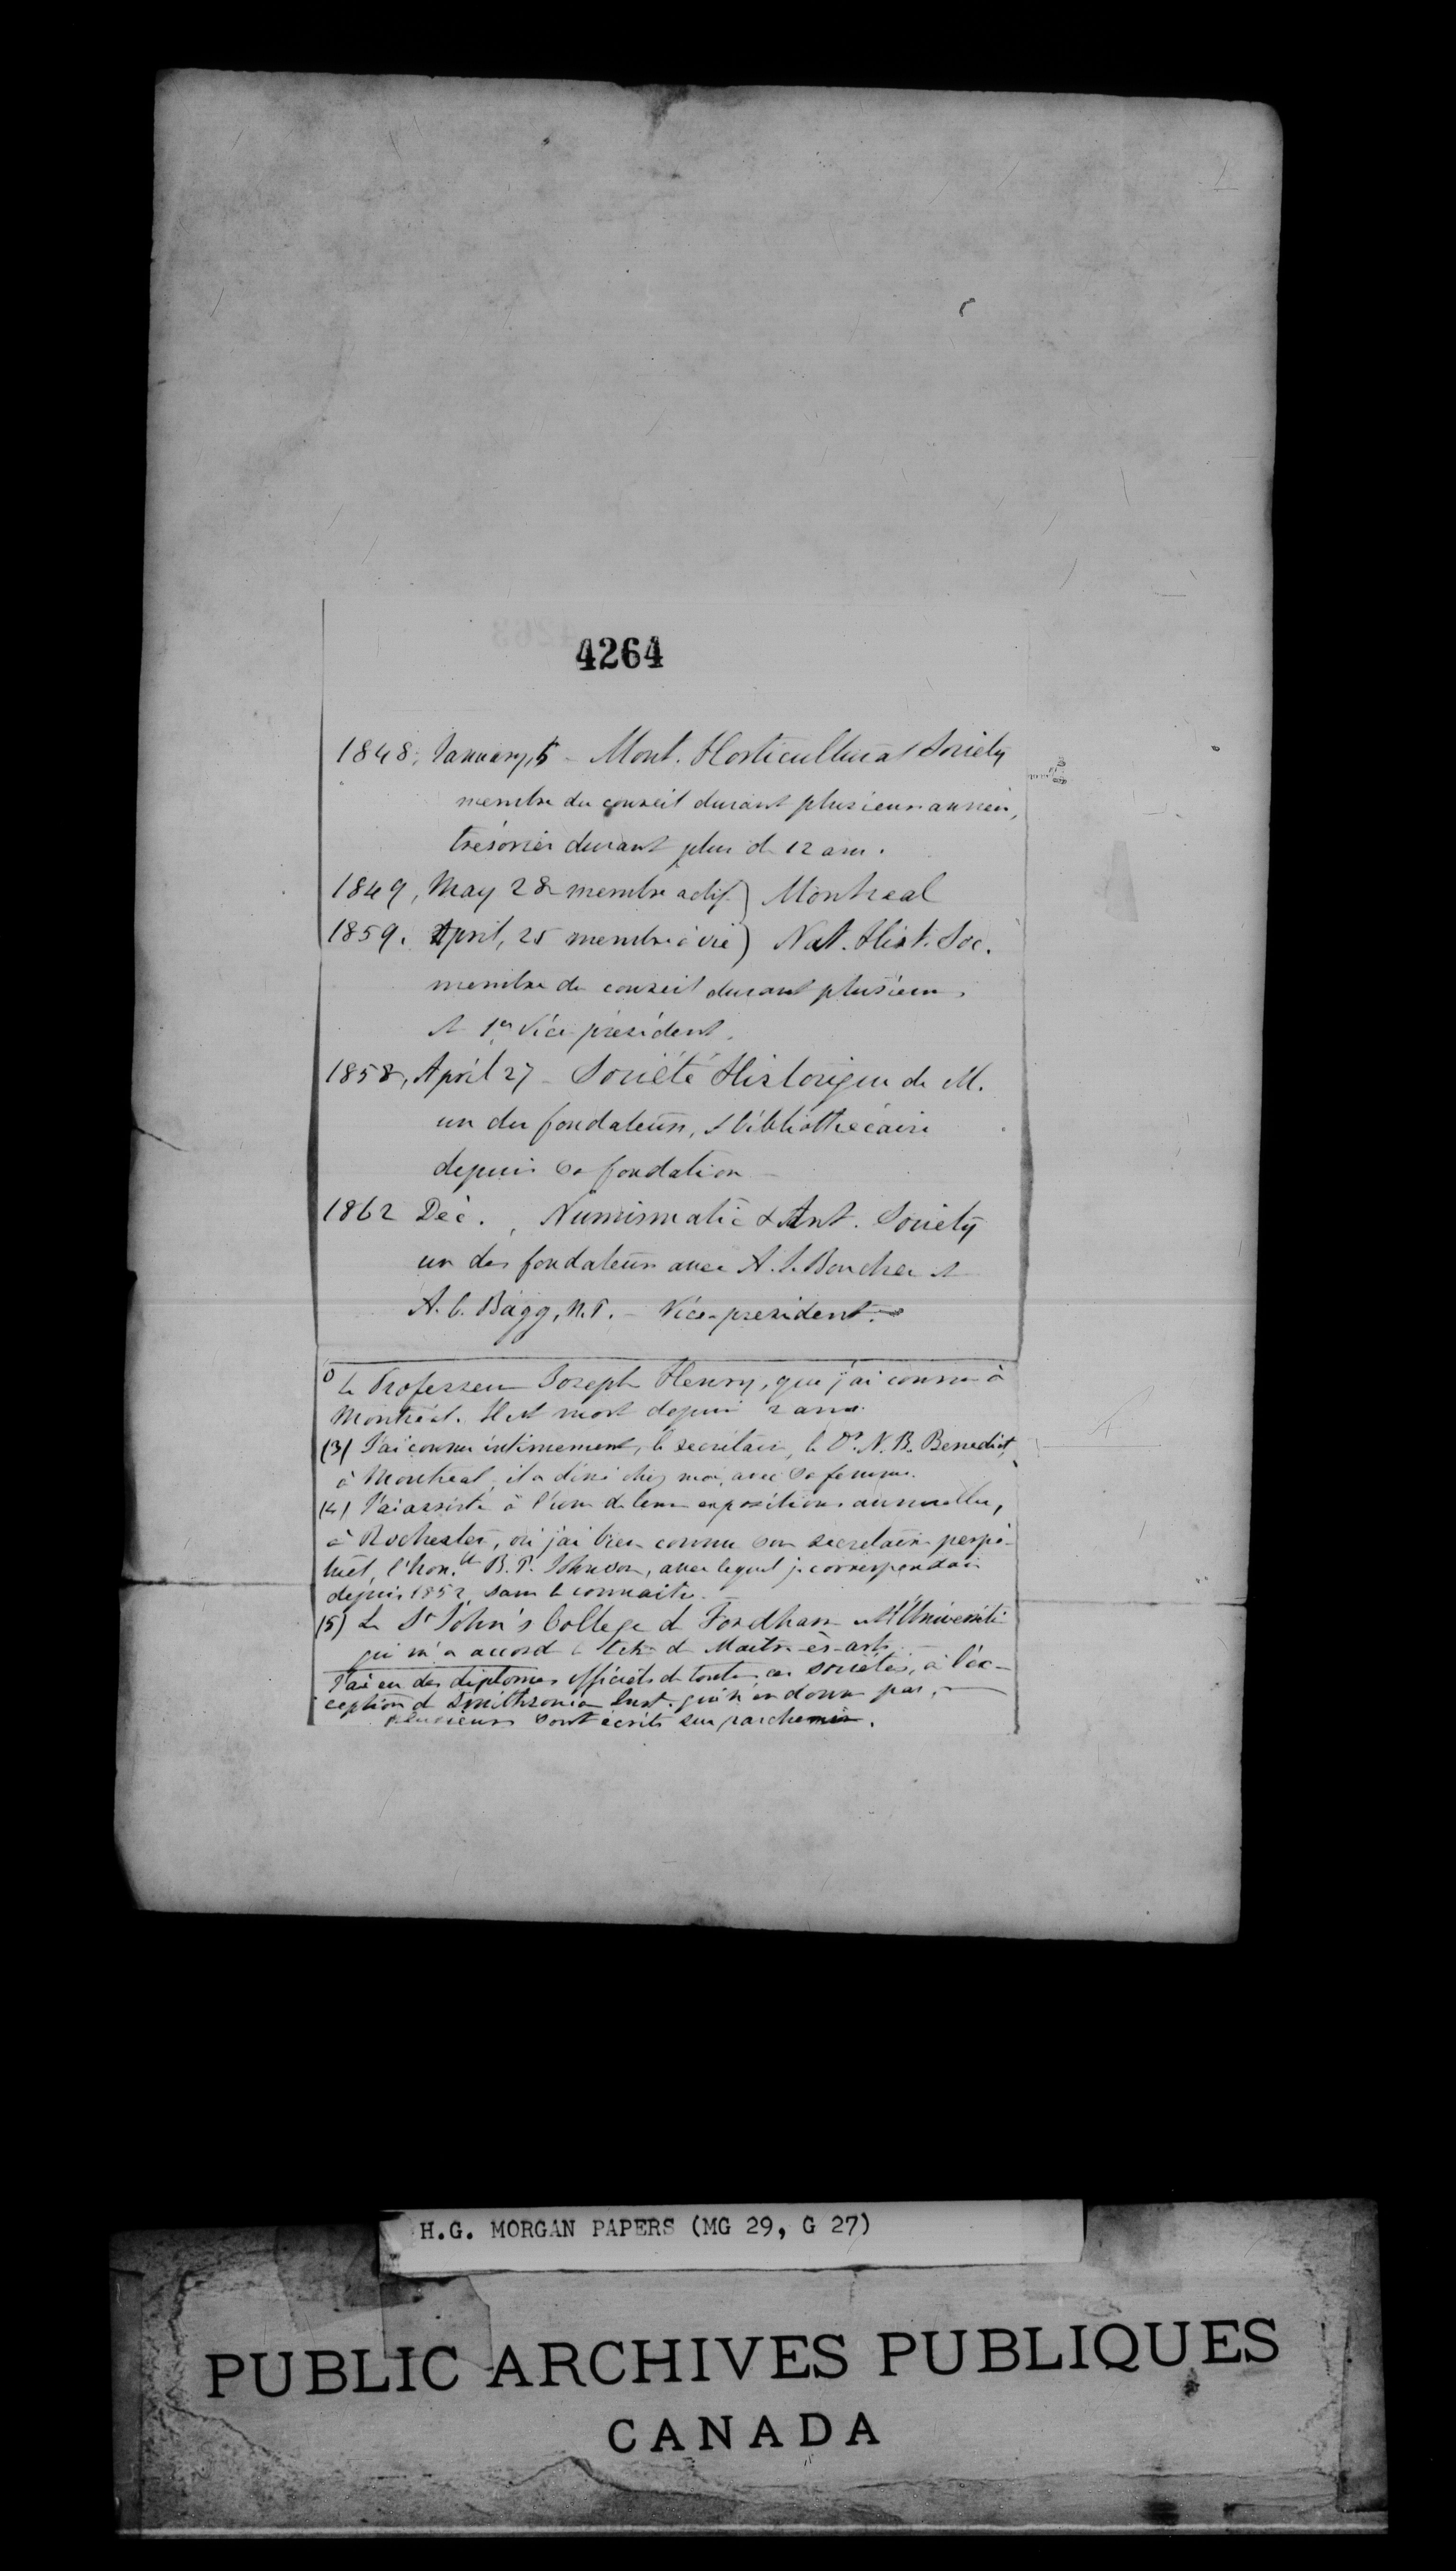 4264
1848, January, 5 - Mont. Horticultural Society
membre du conseil durant plusieurs années,
trésorier durant plus de 12 ans.
1849, May 28 membre actif ) Montreal
1859. April, 25 membre à vie ) Nat. Hist. Soc.
membre du conseil durant plusieurs
et 1er Vice président.
1858, April 27 - Société Historique de M.
un des fondateurs, & bibliothécaire
depuis sa fondation -
1862 Déc. , Numismatic & Ant. Society
un des fondateurs avec A. J. Boucher et
A. C. Bagg, N.P. - Vice-president.
Le Professeur Joseph Henry, que j'ai connu à
Montréal. Il est mort depuis 2 ans.
(3) J'ai connu intimement, le secrétaire, le Dr. N. B. Benedict,
à Montreal, il a diné chez moi, avec sa femme.
(4) J'ai assisté à l'une de leurs expositions annuelles,
à Rochester, où j'ai bien connu son secretaire perpé-
tuel, l'hon.ble B. P. Johnson, avec lequel je correspondais
depuis 1852, sans le connaitre.
(5) Le St John's College de Fordham est l'Université
qui m'a accordé le titre de Maitre-ès-arts.
J'ai eu des diplomes officiels de toutes ces sociétés, à l'ex-
ception de Smithsonian Inst. qui n'en donne pas,
plusieurs sont écrits sur parchemin.
H.G. MORGAN PAPERS (MG 29, G 27)
PUBLIC ARCHIVES PUBLIQUES
CANADA